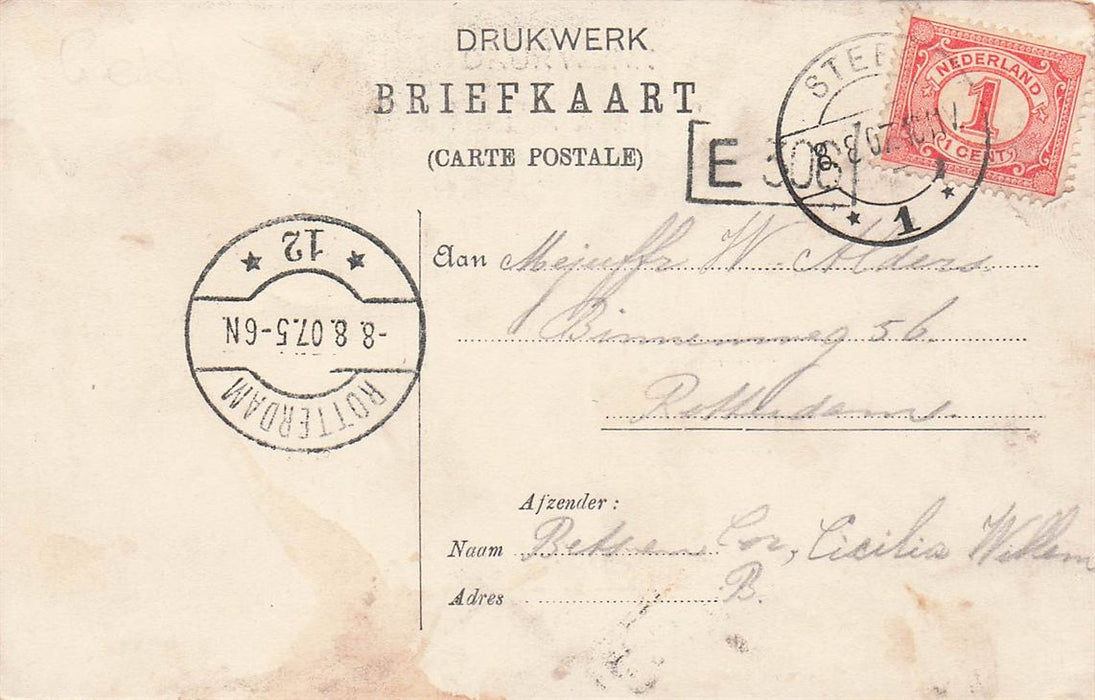 DRUKWERK
BRIEFKAART
(CARTE POSTALE)
NEDERLAND
1
1 CENT
E 306
1
12
-8.8.07.5-6N.
ROTTERDAM
Aan Mejuffr W. Alders
Binnenweg 56.
Rotterdam.
Afzender:
Naam Betsie en Cor, Cicilia Willem
Adres B.